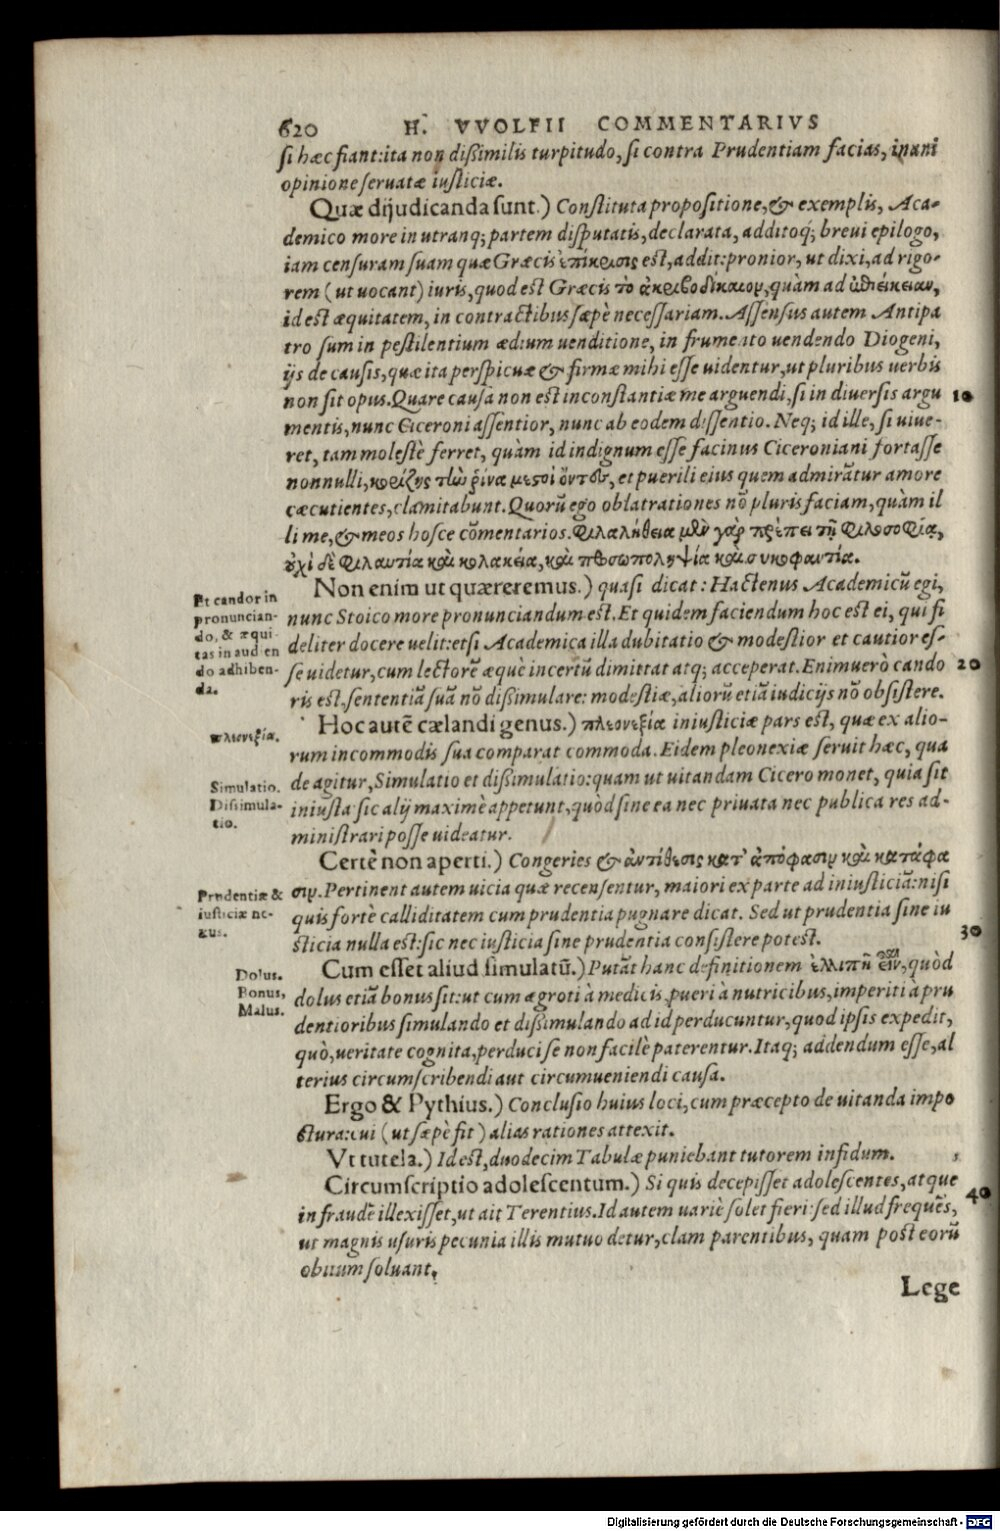 620 H. VVOLFII COMMENTARIVS
si hæc fiant: ita non dißimilis turpitudo, si contra Prudentiam facias, inani
opinione seruatæ iusticiæ.
Quæ dijudicanda sunt.) Constituta propositione, & exemplis, Aca-
demico more in utranq; partem disputatis, declarata, additoq́; breui epilogo,
iam censuram suam quæ Græcis ἐπίκρισις est, addit: pronior, ut dixi, ad rigo-
rem (ut uocant) iuris, quod est Græcis τὸ ἀκριβοδίκαιον, quàm ad ἐπιείκειαν,
id est æquitatem, in contractibus sæpè necessariam. Assensus autem Antipa
tro sum in pestilentium ædium uenditione, in frumento uendendo Diogeni,
ijs de causis, quæ ita perspicuæ & firmæ mihi esse uidentur, ut pluribus uerbis
non sit opus. Quare causa non est inconstantiæ me arguendi, si in diuersis argu 10
mentis, nunc Ciceroni assentior, nunc ab eodem dissentio. Neq; id ille, si uiue-
ret, tam molestè ferret, quàm id indignum esse facinus Ciceroniani fortasse
nonnulli, κορίζης τὴν ῥῖνα μεστοὶ ὄντες, et puerili eius quem admirãtur amore
cæcutientes, clamitabunt. Quorũ ego oblatrationes nõ pluris faciam, quàm il
li me, & meos hosce cõmentarios. Φιλαλήθεια μὲν γὰρ πρέπει τῇ Φιλοσοφίᾳ,
ὀχὶ δὲ Φιλαυτία καὶ κολακεία, καὶ προσωποληψία καὶ συκοφαντία.
Et candor in
pronuncian-
do, & æqui-
tas in audien
do adhiben-
da.
Non enim ut quæreremus.) quasi dicat: Hactenus Academicũ egi,
nunc Stoico more pronunciandum est. Et quidem faciendum hoc est ei, qui fi
deliter docere uelit: etsi Academica illa dubitatio & modestior et cautior es-
se uidetur, cum lectorẽ æquè incertũ dimittat atq; acceperat. Enimuerò cando 20
ris est, sententiã suã nõ dißimulare: modestiæ, aliorũ etiã iudicijs nõ obsistere.
πλεονεξία.
Hoc autẽ cælandi genus.) πλεονεξία iniusticiæ pars est, quæ ex alio-
rum incommodis sua comparat commoda. Eidem pleonexiæ seruit hæc, qua
Simulatio.
Dissimula-
tio.
de agitur, Simulatio et dißimulatio: quam ut uitandam Cicero monet, quia sit
iniusta: sic alij maximè appetunt, quòd sine ea nec priuata nec publica res ad-
ministrari posse uideatur.
Certè non aperti.) Congeries & ἀντίθεσις κατ' ἀπόφασιν καὶ κατάφα
Prudentiæ &
iusticiæ ne-
xus.
σιν. Pertinent autem uicia quæ recensentur, maiori ex parte ad iniusticiã: nisi
quis fortè calliditatem cum prudentia pugnare dicat. Sed ut prudentia sine iu
sticia nulla est: sic nec iusticia sine prudentia consistere potest. 30
Dolus.
Bonus,
Malus.
Cum esset aliud simulatũ.) Putãt hanc definitionem ἐλλιπῆ εἶναι, quòd
dolus etiã bonus sit: ut cum ægroti à medicis, pueri à nutricibus, imperiti à pru
dentioribus simulando et dißimulando ad id perducuntur, quod ipsis expedit,
quò, ueritate cognita, perduci se non facilè paterentur. Itaq; addendum esse, al
terius circumscribendi aut circumueniendi causa.
Ergo & Pythius.) Conclusio huius loci, cum præcepto de uitanda impo
stura: cui (ut sæpè fit) alias rationes attexit.
Vt tutela.) Id est, duodecim Tabulæ puniebant tutorem infidum.
Circumscriptio adolescentum.) Si quis decepisset adolescentes, atque
in fraudẽ illexisset, ut ait Terentius. Id autem uariè solet fieri: sed illud frequẽs, 40
ut magnis usuris pecunia illis mutuo detur, clam parentibus, quam post eorũ
obitum soluant.
Lege
Digitalisierung gefördert durch die Deutsche Forschungsgemeinschaft - DFG